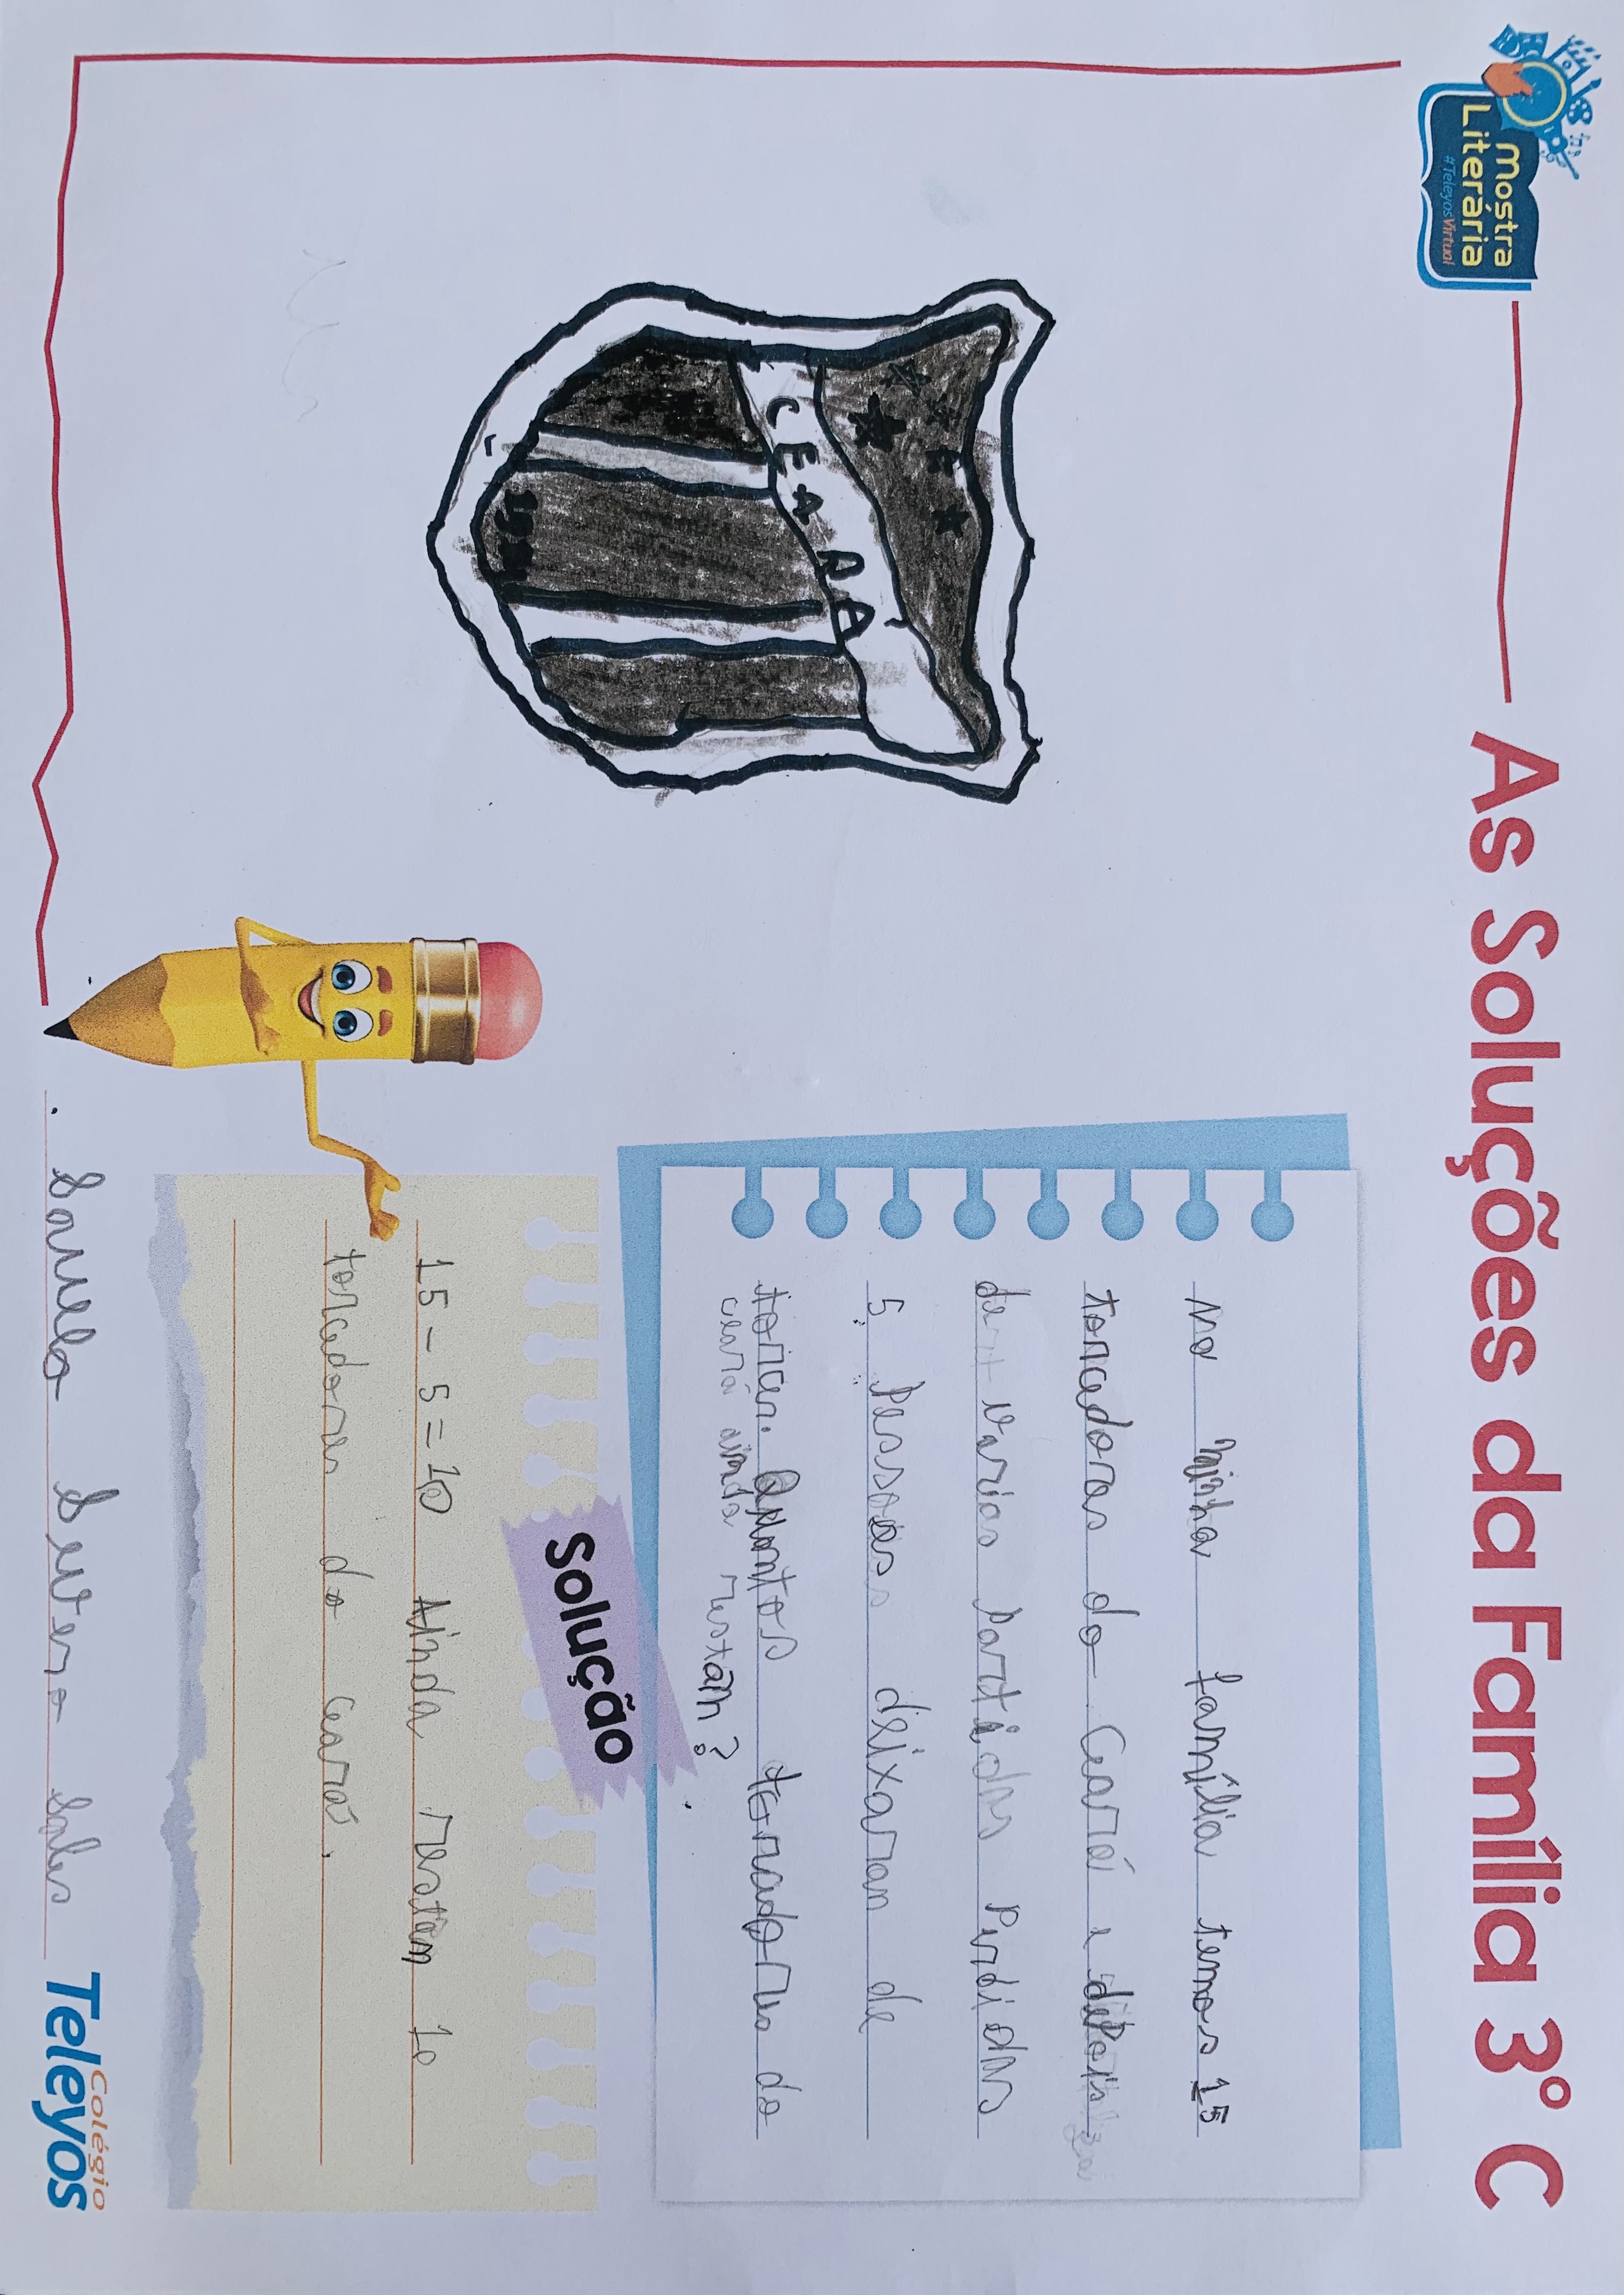 Mostra
Literária
#TeleyosVirtual
As Soluções da Família 3° C
CEARÁ
na minha família temos 15
torcedores do Ceará e depois
de varias partidas perdidas
5 pessoas deixaram de
torcer. Quantos torcedores do
ceará ainda restam?
Solução
15 - 5 = 10 Ainda restam 10
torcedores do ceará.
Samuel Severo Sales
Colégio
Teleyos